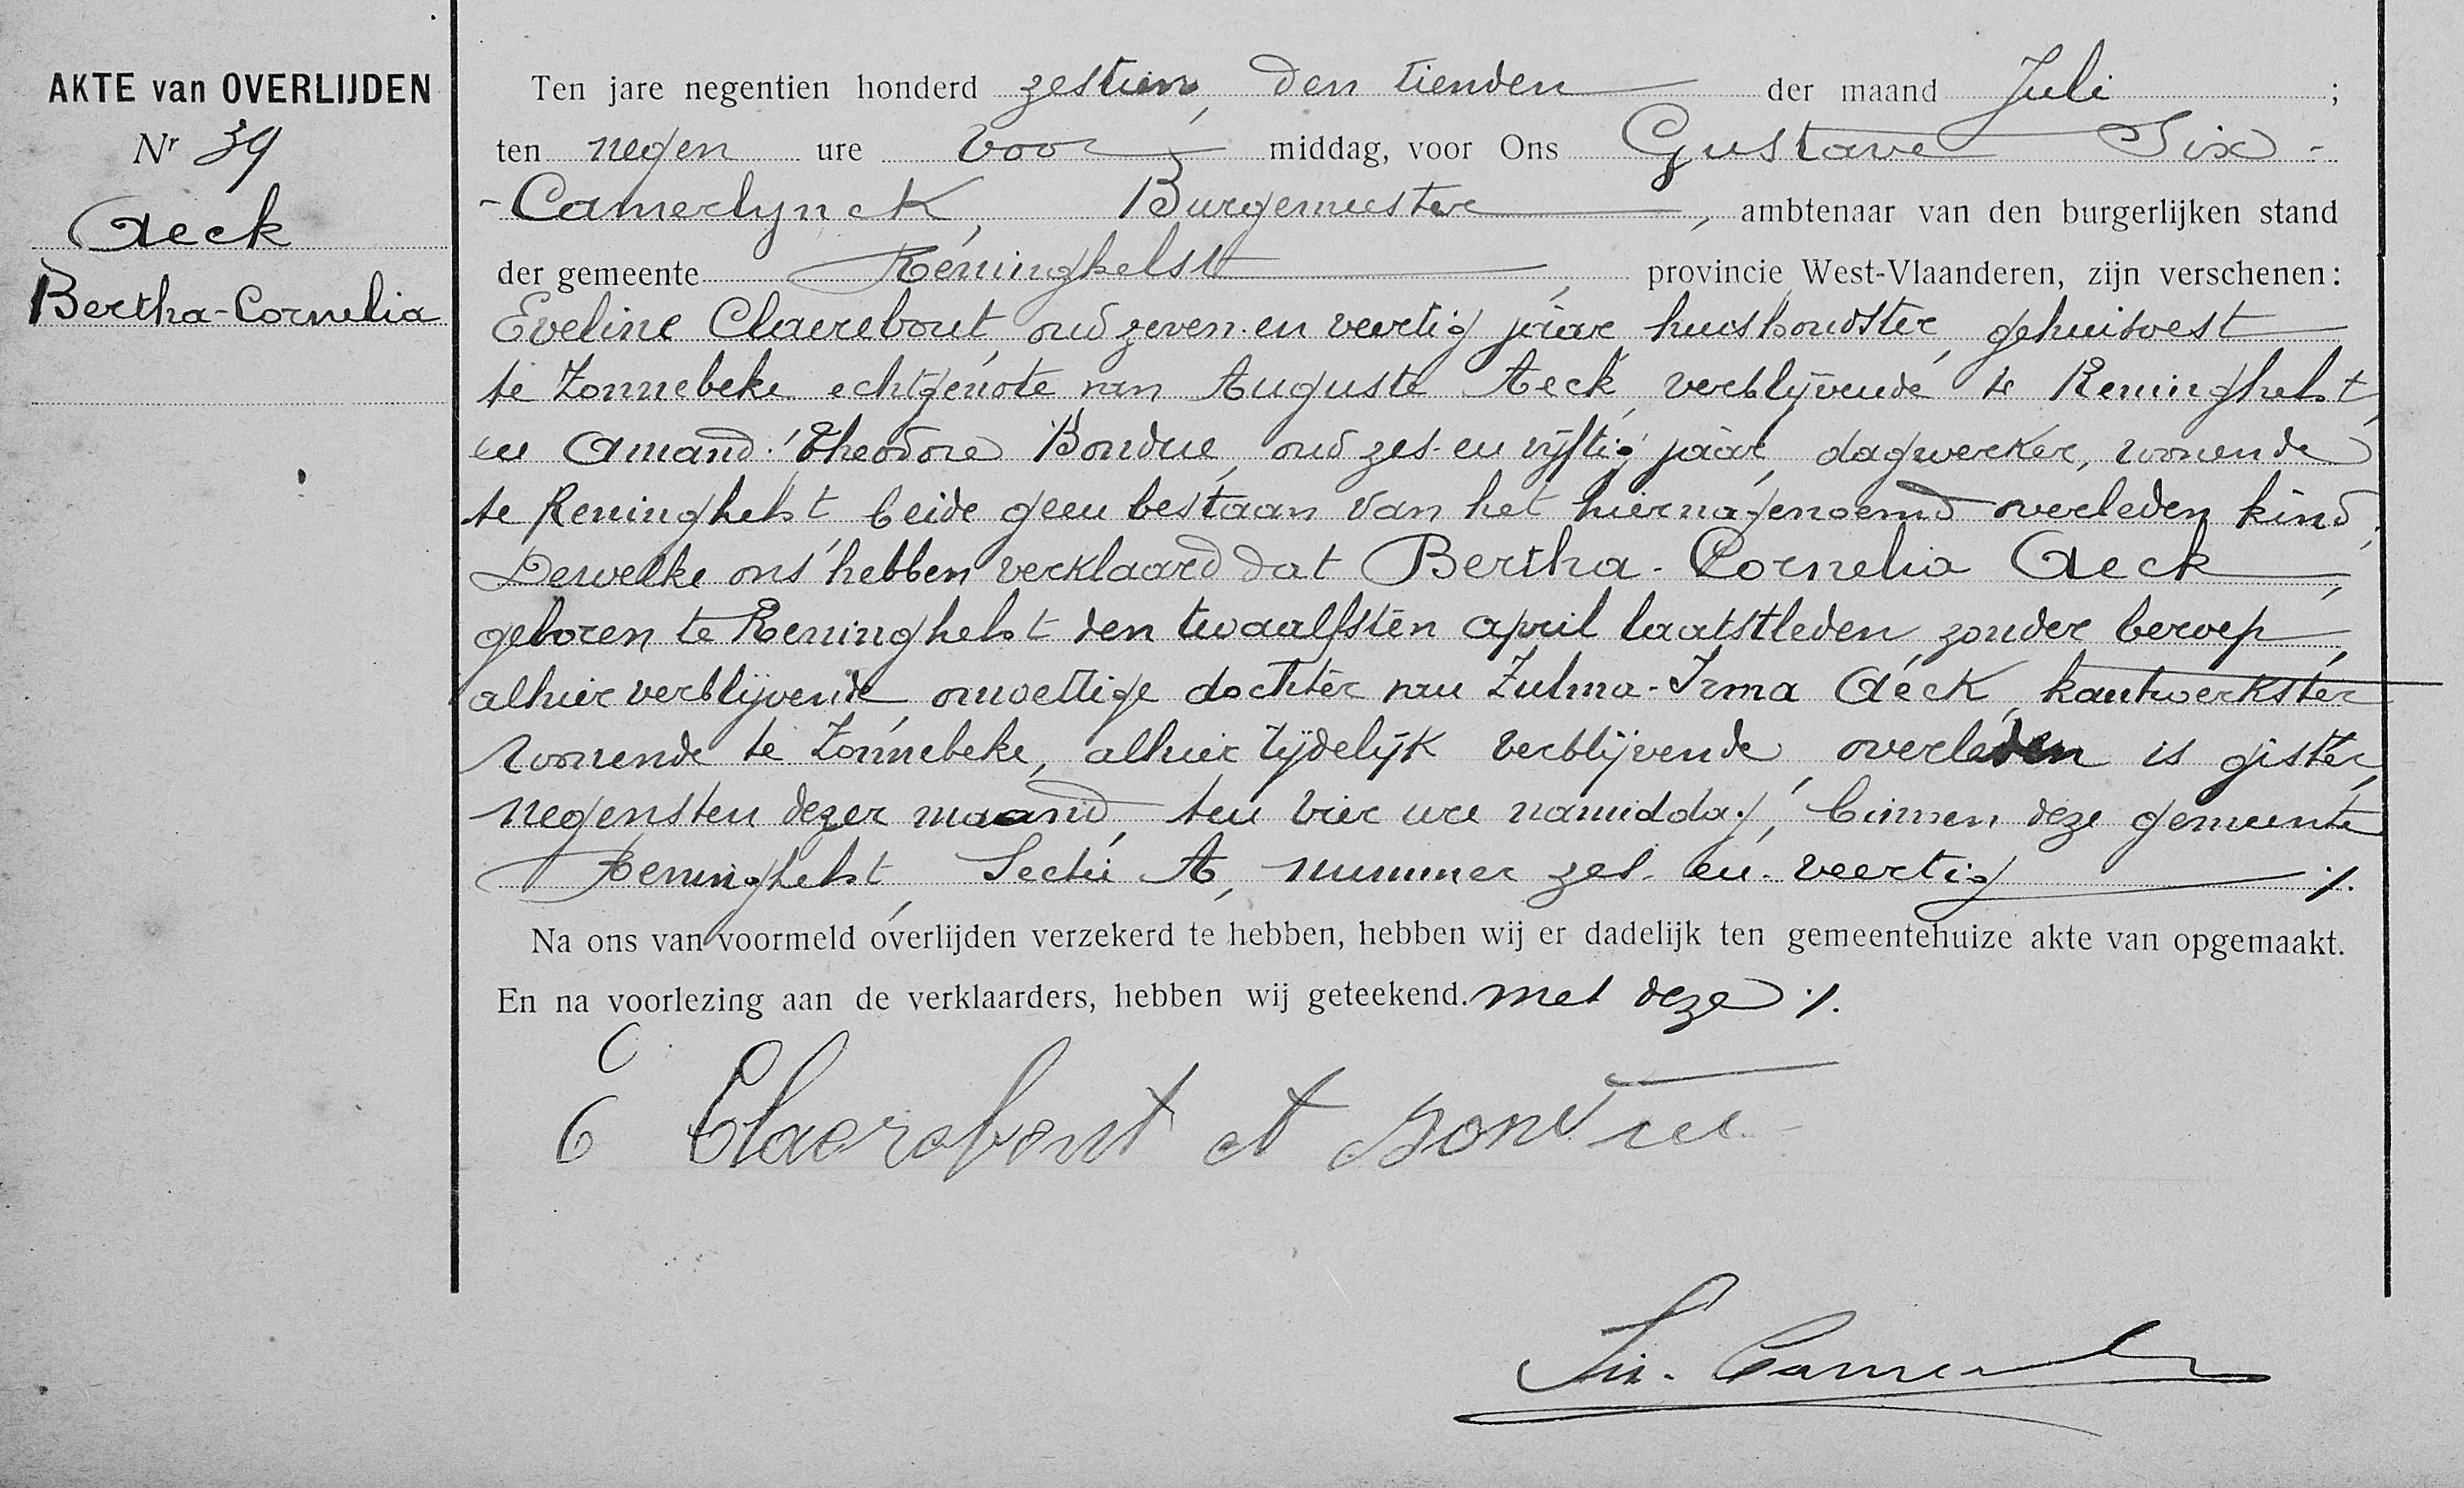 AKTE van OVERLIJDEN
Nr 39
Aeck
Bertha-Cornelia
Ten jare negentien honderd zestien, den tienden der maand Juli ;
ten negen ure voor middag, voor Ons Gustave Six-
-Camerlynck, Burgemeester, ambtenaar van den burgerlijken stand
der gemeente Reninghelst, provincie West-Vlaanderen, zijn verschenen:
Eveline Claerebout, oud zeven-en veertig jaar huishoudster, gehuisvest
te Zonnebeke echtgenote van Auguste Aeck, verblijvende te Reninghelst,
en Amand-Theodore Bondue, oud zes-en vijftig jaar, dagwerker, wonende
te Reninghelst, beide geen bestaan van het hiernagenoemd overleden kind.
Dewelke ons hebben verklaard dat Bertha-Cornelia Aeck,
geboren te Reninghelst den twaalfsten april laatstleden, zonder beroep,
alhier verblijvende, onwettige dochter van Zulma-Irma Aeck, kantwerkster
wonende te Zonnebeke, alhier tijdelijk verblijvende, overleden is gister,
negensten dezer maand, ten vier ure namiddag, binnen deze gemeente
Reninghelst, Sectie A, nummer zes-en-veertig ./.
Na ons van voormeld overlijden verzekerd te hebben, hebben wij er dadelijk ten gemeentehuize akte van opgemaakt.
En na voorlezing aan de verklaarders, hebben wij geteekend. met deze ./.
E Claerebout A Bondue
Six-Camerlynck